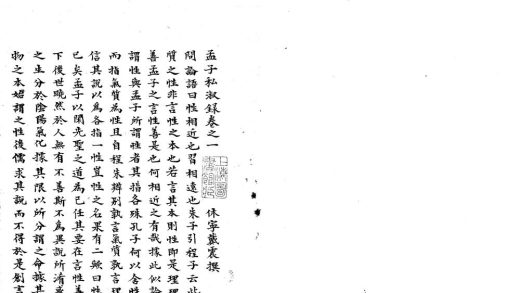 孟子私淑錄卷之一　休寧戴震撰
問論語曰性相近也習相遠也朱子引程子云此
質之性非言性之本也若言其本則性即是理理
善孟子之言性善是也何相近之有哉據此似論
謂性與孟子所謂性者其指各殊孔子何以舍性
而指氣質為性且自程朱辨別孰言氣質孰言理
信其說以為各指一性豈性之名果有二歟曰性
已矣孟子以閑先聖之道為已任其要在言性善
下後世曉然於人無有不善斯不為異說所淆
之生分於陰陽氣化據其限以所分謂之命據其
物之本始謂之性後儒求其說而不得於是創言